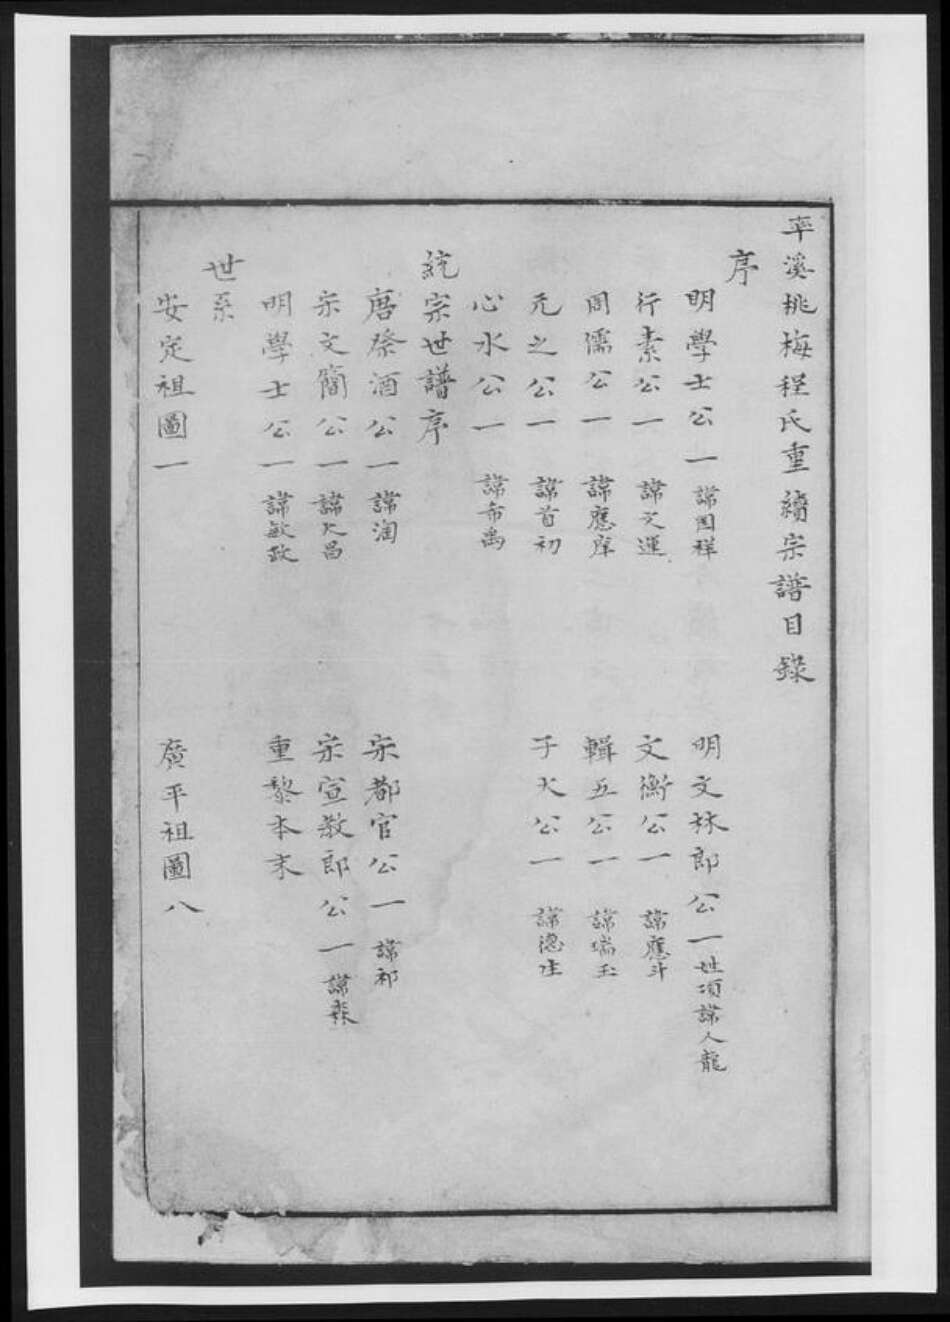 率溪桃梅程氏重續宗譜目錄
序
明學士公一 諱國祥 明文林郎公一 姓項諱人龍
行素公一 諱文運 文衡公一 諱應斗
同儒公一 諱應庠 輯五公一 諱瑞玉
元之公一 諱首初 子大公一 諱德生
心水公一 諱希禹
統宗世譜序
唐祭酒公一 諱淘 宋都官公一 諱祁
宋文簡公一 諱大昌 宋宣教郎公一 諱森
明學士公一 諱敏政 重黎本末
世系
安定祖圖一 廣平祖圖八